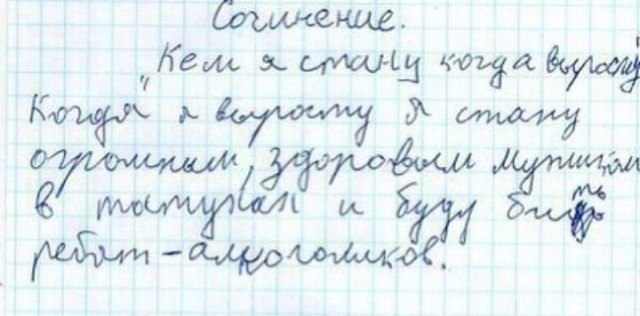 Сочинение.
"Кем я стану когда вырасту"
Когдя я вырасту я стану
огромным, здоровым мужиком
в татухах и буду бить
ребят-алкоголиков.